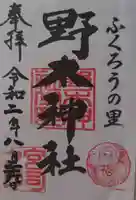 ふくろうの里
野木神社
奉拝
令和二年八月